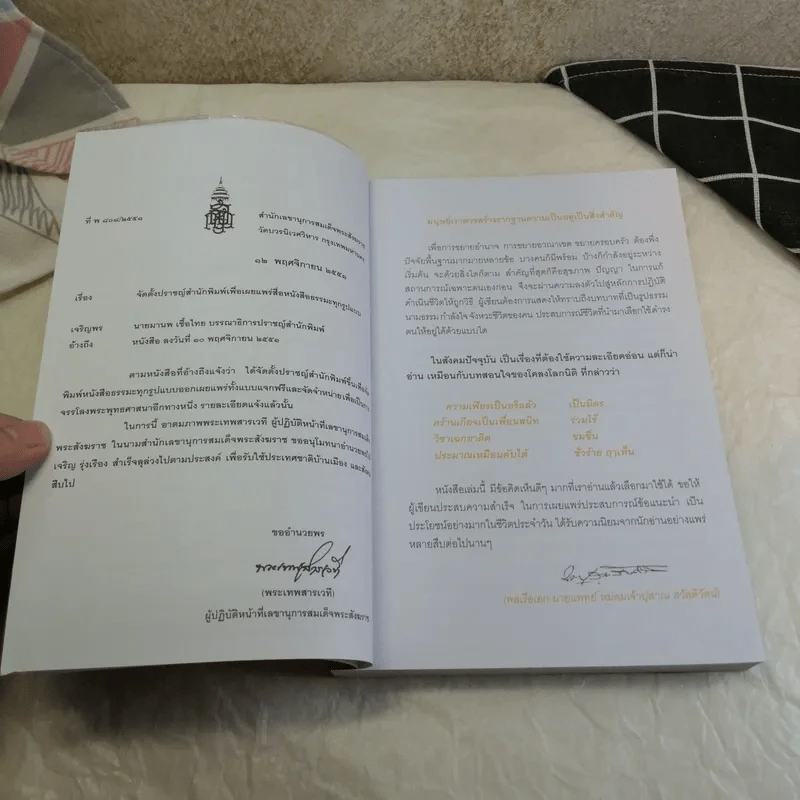 ที่ พ ๘๐๘/๒๕๕๑
สำนักเลขานุการสมเด็จพระสังฆราช
วัดบวรนิเวศวิหาร กรุงเทพมหานคร
๑๒ พฤศจิกายน ๒๕๕๑
เรื่อง จัดตั้งปราชญ์สำนักพิมพ์เพื่อเผยแพร่สื่อหนังสือธรรมะทุกรูปแบบ
เจริญพร นายมานพ เชื้อไทย บรรณาธิการปราชญ์สำนักพิมพ์
อ้างถึง หนังสือ ลงวันที่ ๑๐ พฤศจิกายน ๒๕๕๑
ตามหนังสือที่อ้างถึงแจ้งว่า ได้จัดตั้งปราชญ์สำนักพิมพ์ขึ้นเพื่อจัด
พิมพ์หนังสือธรรมะทุกรูปแบบออกเผยแพร่ทั้งแบบแจกฟรีและจัดจำหน่ายเพื่อเป็นการ
จรรโลงพระพุทธศาสนาอีกทางหนึ่ง รายละเอียดแจ้งแล้วนั้น
ในการนี้ อาตมภาพพระเทพสารเวที ผู้ปฏิบัติหน้าที่เลขานุการสมเด็จ
พระสังฆราช ในนามสำนักเลขานุการสมเด็จพระสังฆราช ขออนุโมทนาอำนวยพรให้
เจริญ รุ่งเรือง สำเร็จลุล่วงไปตามประสงค์ เพื่อรับใช้ประเทศชาติบ้านเมือง และสังคม
สืบไป
ขออำนวยพร
(พระเทพสารเวที)
ผู้ปฏิบัติหน้าที่เลขานุการสมเด็จพระสังฆราช
มนุษย์เราควรสร้างรากฐานความเป็นอยู่เป็นสิ่งสำคัญ
เพื่อการขยายอำนาจ การขยายอาณาเขต ขยายครอบครัว ต้องพึ่ง
ปัจจัยพื้นฐานมากมายหลายข้อ บางคนก็มีพร้อม บ้างก็กำลังอยู่ระหว่าง
เริ่มต้น จะด้วยสิ่งใดก็ตาม สำคัญที่สุดก็คือสุขภาพ ปัญญา ในการแก้
สถานการณ์เฉพาะตนเองก่อน จึงจะผ่านความลงตัวไปสู่หลักการปฏิบัติ
ดำเนินชีวิตให้ถูกวิธี ผู้เขียนต้องการแสดงให้ทราบถึงบทบาทที่เป็นรูปธรรม
นามธรรม กำลังใจ จังหวะชีวิตของคน ประสบการณ์ชีวิตที่นำมาเลือกใช้ดำรง
ตนให้อยู่ได้ด้วยแบบใด
ในสังคมปัจจุบัน เป็นเรื่องที่ต้องใช้ความละเอียดอ่อน แต่ก็น่า
อ่าน เหมือนกับบทสอนใจของโคลงโลกนิติ ที่กล่าวว่า
ความเพียรเป็นอริแล้ว เป็นมิตร
คร้านเกียจเป็นเพื่อนสนิท ร่วมไร้
วิชาเฉกยาติด ขมขื่น
ประมาทเหมือนดับไต้ ชั่วร้าย ฤๅเห็น
หนังสือเล่มนี้ มีข้อคิดเห็นดีๆ มากที่เราอ่านแล้วเลือกมาใช้ได้ ขอให้
ผู้เขียนประสบความสำเร็จ ในการเผยแพร่ประสบการณ์ข้อแนะนำ เป็น
ประโยชน์อย่างมากในชีวิตประจำวัน ได้รับความนิยมจากนักอ่านอย่างแพร่
หลายสืบต่อไปนานๆ
(พลเรือเอก นายแพทย์ หม่อมเจ้าปุสาณ สวัสดิวัตน์)